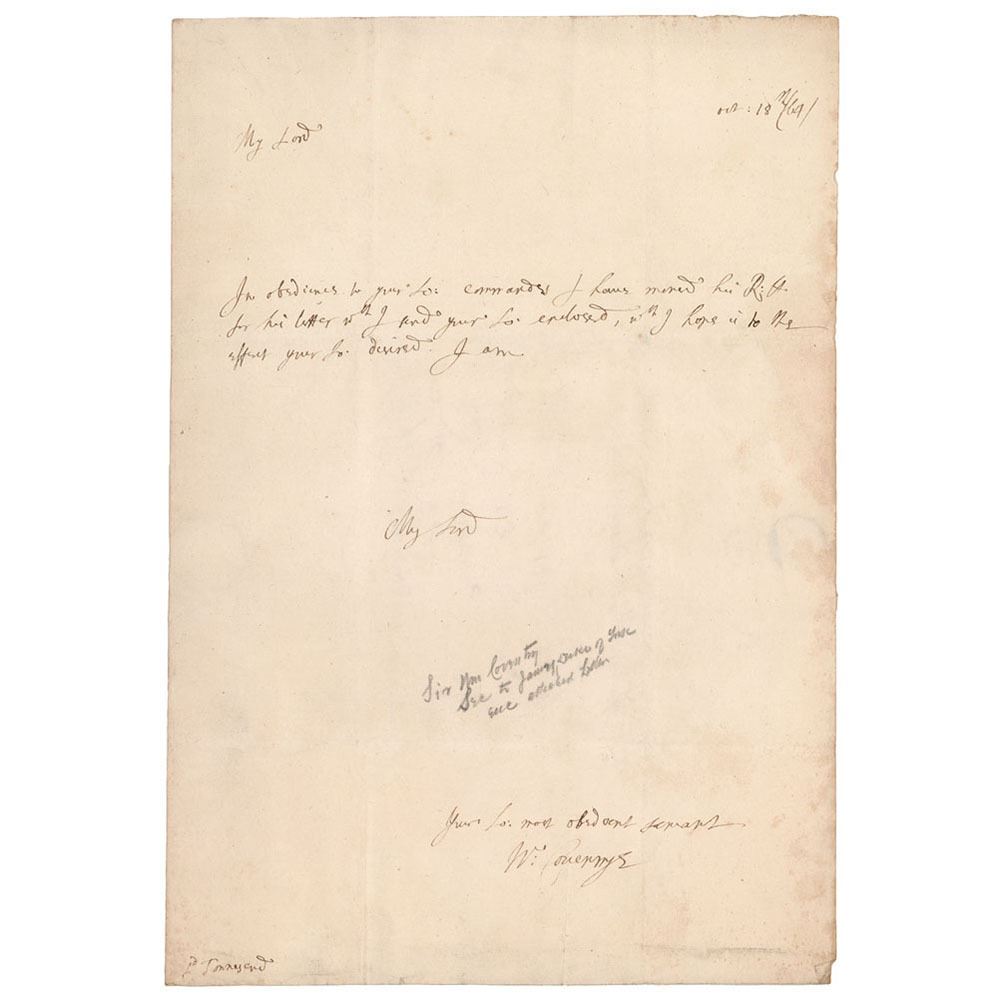 oct: 18th/64/
My Lord
In obedience to your Lo: commandes I have moved his R: H.
for his letter wch I send your Lo: enclosed, wch I hope is to the
effect your Lo: desired. I am
My Lord
Sir Wm Coventry
Sec to James, Duke of York
see attached Letter
Your Lo: most obedient servant
Wm: Coventrye
Ld Townsend